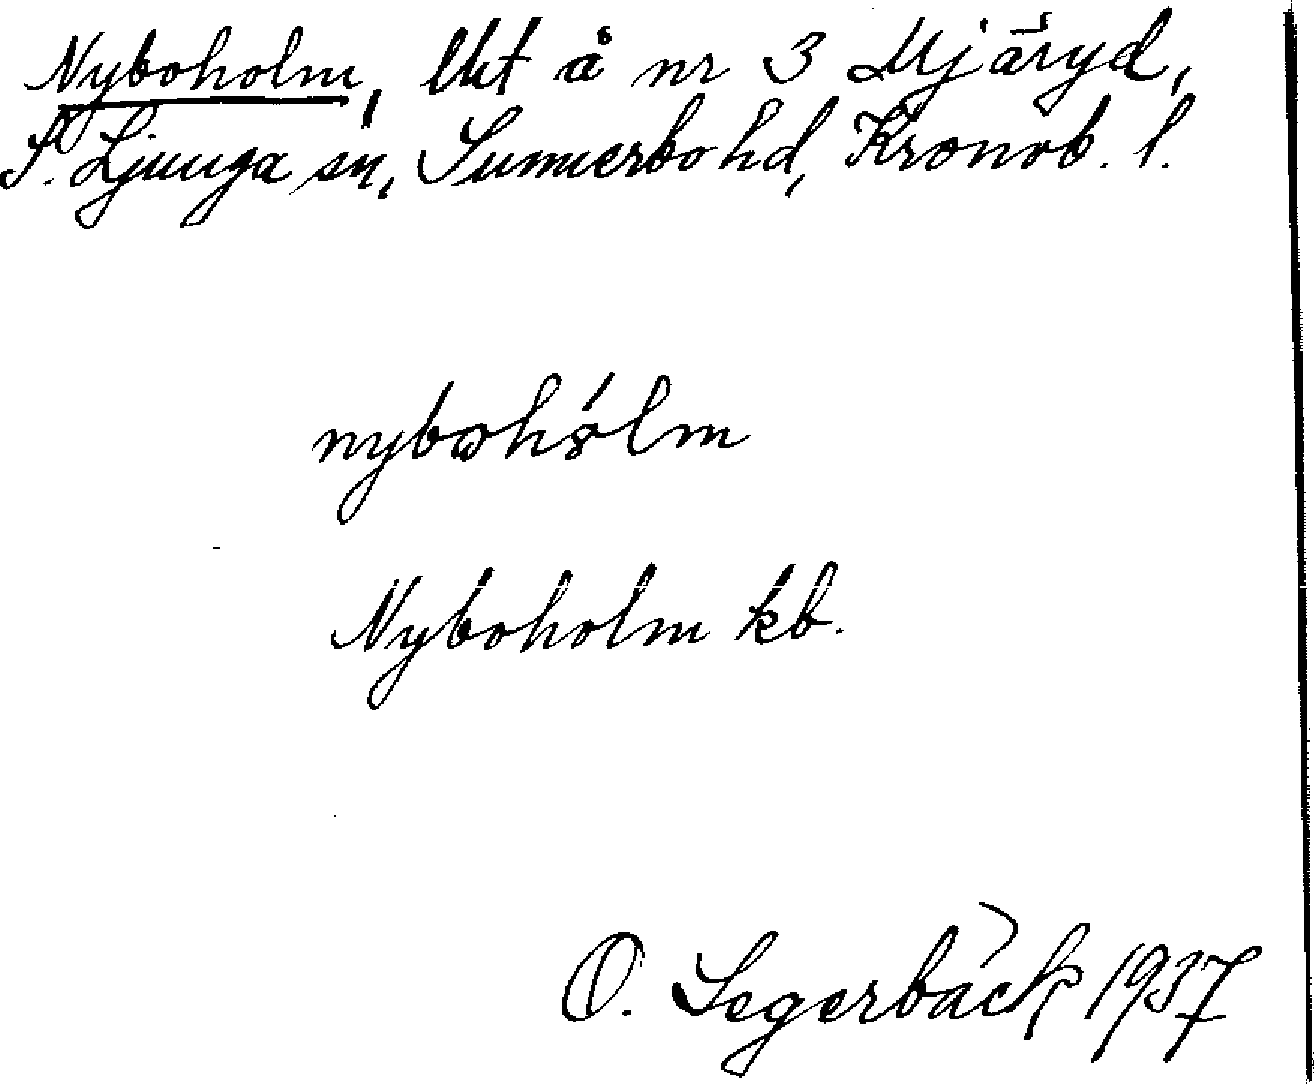 Nyboholm, lht å nr 3 Mjäryd,
S. Ljunga sn, Sunnerbo hd, Kronob. l.
nybohólm
Nyboholm kb.
O. Segerbäck 1937